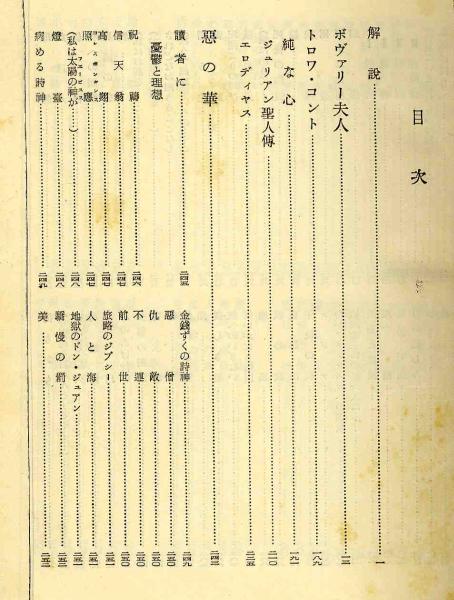 目次
解説……一
ボヴァリー夫人……一三
トロワ・コント……一八九
純な心……一九一
ジュリアン聖人傳……二一〇
エロディヤス……二二五
惡の華……二四三
讀者に……二四五
憂鬱と理想
祝禱……二四六
信天翁……二四七
高翔……二四七
照應……二四七
(私は太陽の神が…)……二四八
燈臺……二四八
病める詩神……二四九
金錢ずくの詩神……二四九
惡僧……二五〇
仇敵……二五〇
不運……二五〇
前世……二五〇
旅路のジプシー……二五一
人と海……二五一
地獄のドン・ジュアン……二五一
驕慢の罰……二五二
美……二五二